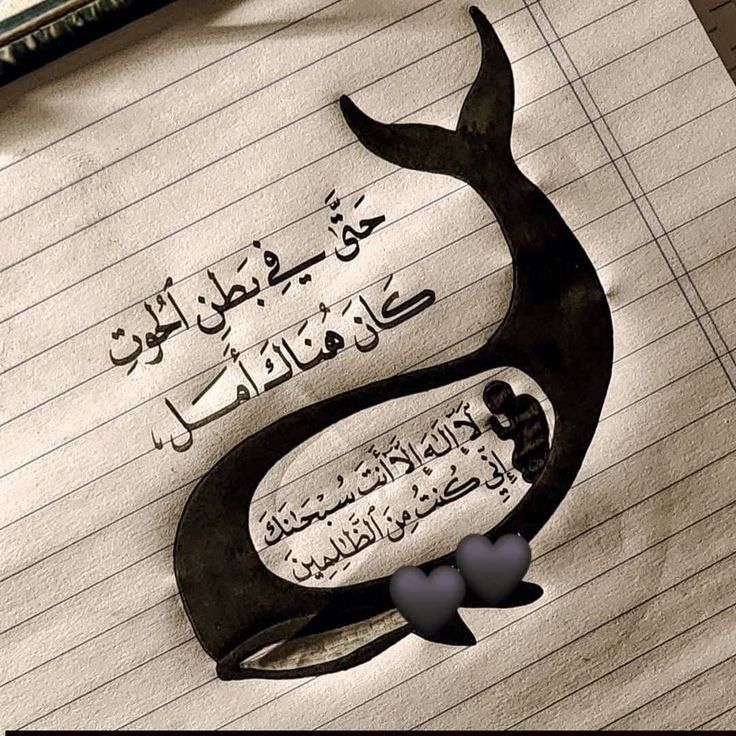 حَتَّىٰ فِي بَطْنِ ٱلحُوتِ
كَانَ هُنَاكَ أَمَل
لَآ إِلَٰهَ إِلَّآ أَنتَ سُبْحَٰنَكَ
إِنِّي كُنتُ مِنَ ٱلظَّٰلِمِينَ